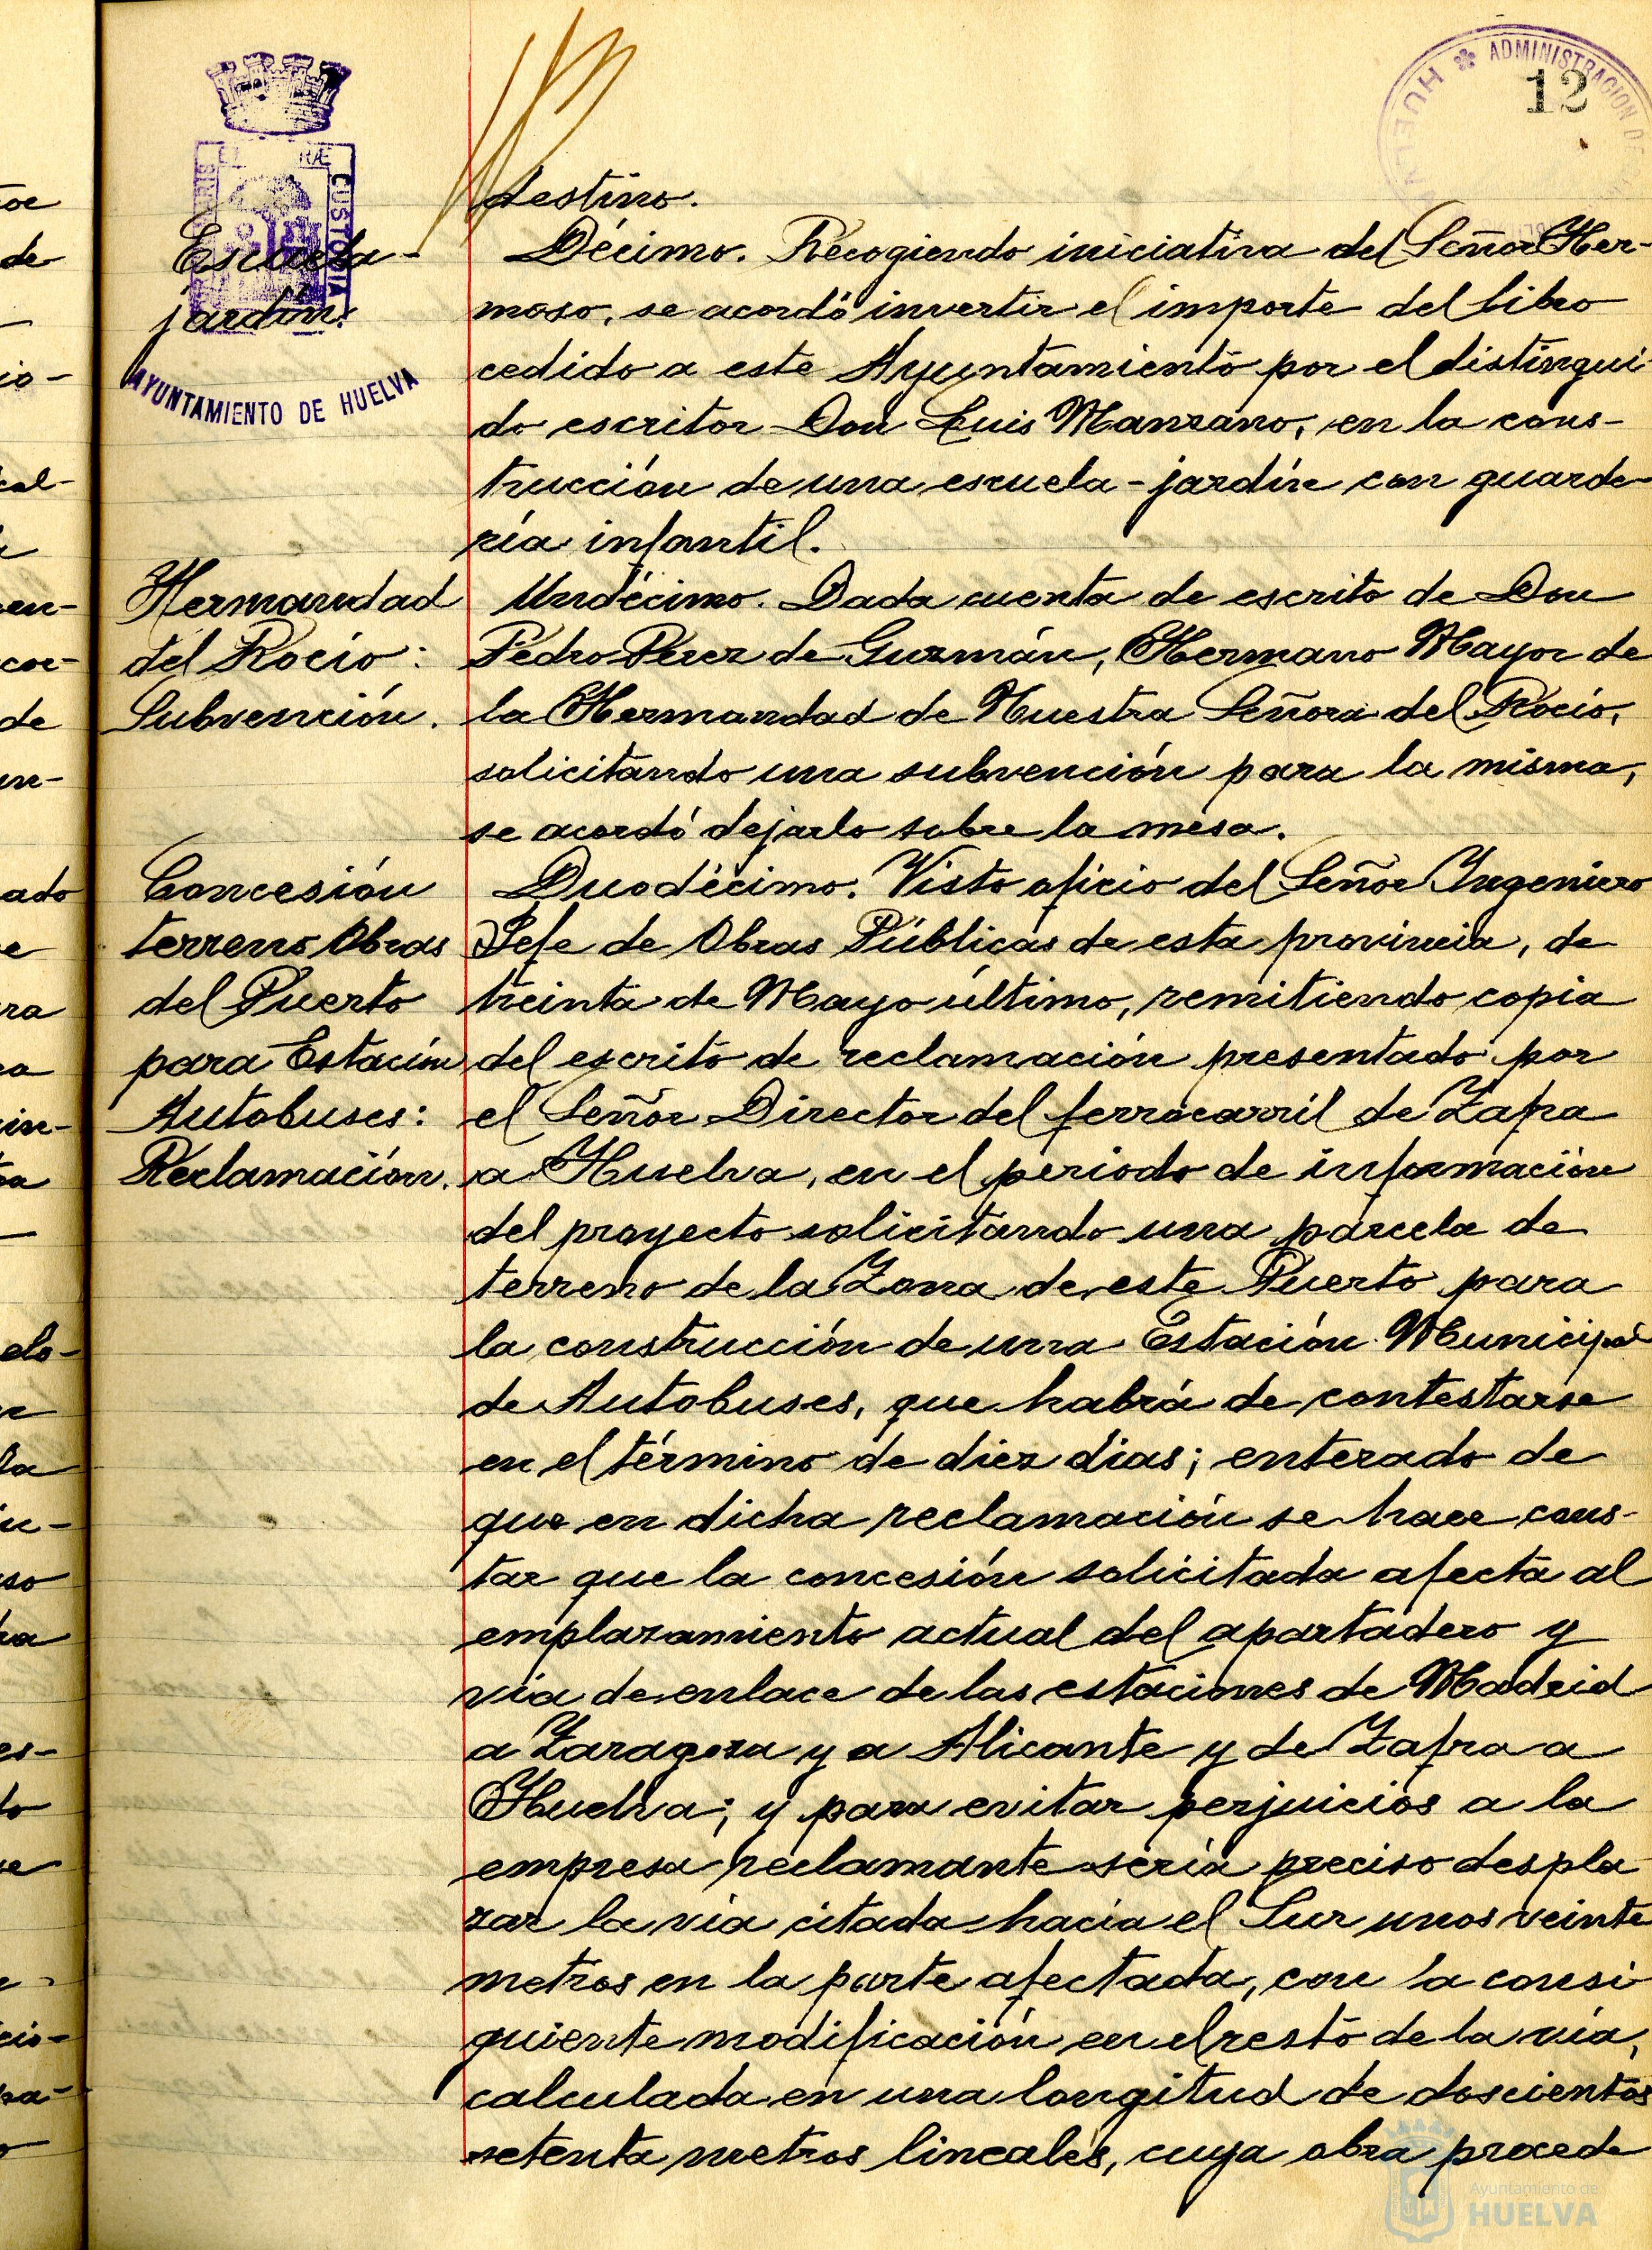 12
ADMINISTRACION DE
HUELVA
CUSTODIA
AYUNTAMIENTO DE HUELVA
destino.
Escuela-
jardín:
Décimo. Recogiendo iniciativa del Señor Her-
moso, se acordó invertir el importe del libro
cedido a este Ayuntamiento por el distingui
do escritor Don Luis Manzano, en la cons-
trucción de una escuela-jardín con guarde-
ría infantil.
Hermandad
del Rocio:
Subvención.
Undécimo. Dada cuenta de escrito de Don
Pedro Pérez de Guzmán, Hermano Mayor de
la Hermandad de Nuestra Señora del Rocio,
solicitando una subvención para la misma,
se acordó dejarlo sobre la mesa.
Concesión
terreno Obras
del Puerto
para Estación
Autobuses:
Reclamación.
Duodécimo. Visto oficio del Señor Ingeniero
Jefe de Obras Públicas de esta provincia, de
treinta de Mayo último, remitiendo copia
del escrito de reclamación presentado por
el Señor Director del ferrocarril de Zafra
a Huelva, en el periodo de información
del proyecto solicitando una parcela de
terreno de la Zona de este Puerto para
la construcción de una Estación Municipal
de Autobuses, que habrá de contestarse
en el término de diez dias; enterado de
que en dicha reclamación se hace cons-
tar que la concesión solicitada afecta al
emplazamiento actual del apartadero y
vía de enlace de las estaciones de Madrid
a Zaragoza y a Alicante y de Zafra a
Huelva; y para evitar perjuicios a la
empresa reclamante sería preciso despla
zar la vía citada hacia el Sur unos veinte
metros en la parte afectada, con la consi
guiente modificación en el resto de la vía,
calculada en una longitud de doscientos
setenta metros lineales, cuya obra procede
Ayuntamiento de
HUELVA